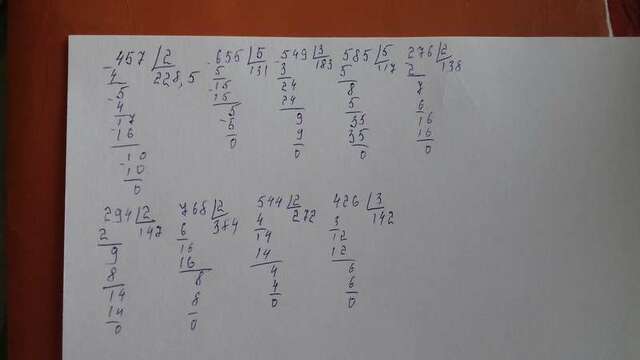 -457|2 -656|5 -549|3 585|5 276|2
4 228,5 5 131 3 183 5 117 2 138
-5 -15 24 8 7
4 15 24 5 6
-17 9 35 16
16 9 35 16
-10 0 0 0 0
10
0
294|2 768|2 544|2 426|3
2 147 6 384 4 272 3 142
9 16 14 12
8 16 14 12
14 8 4 6
14 8 4 6
0 0 0 0